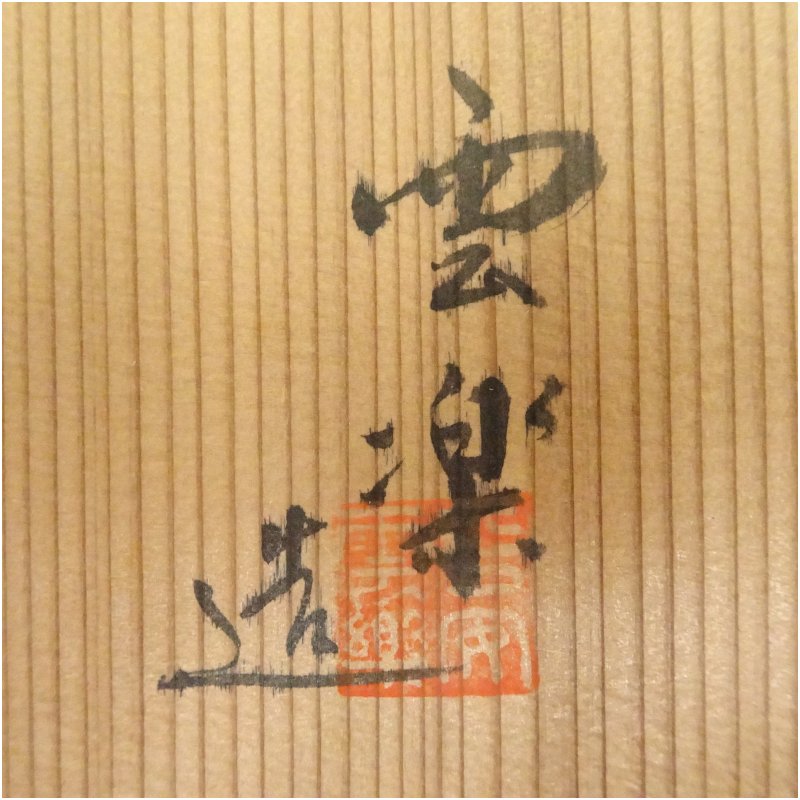 雲楽
造